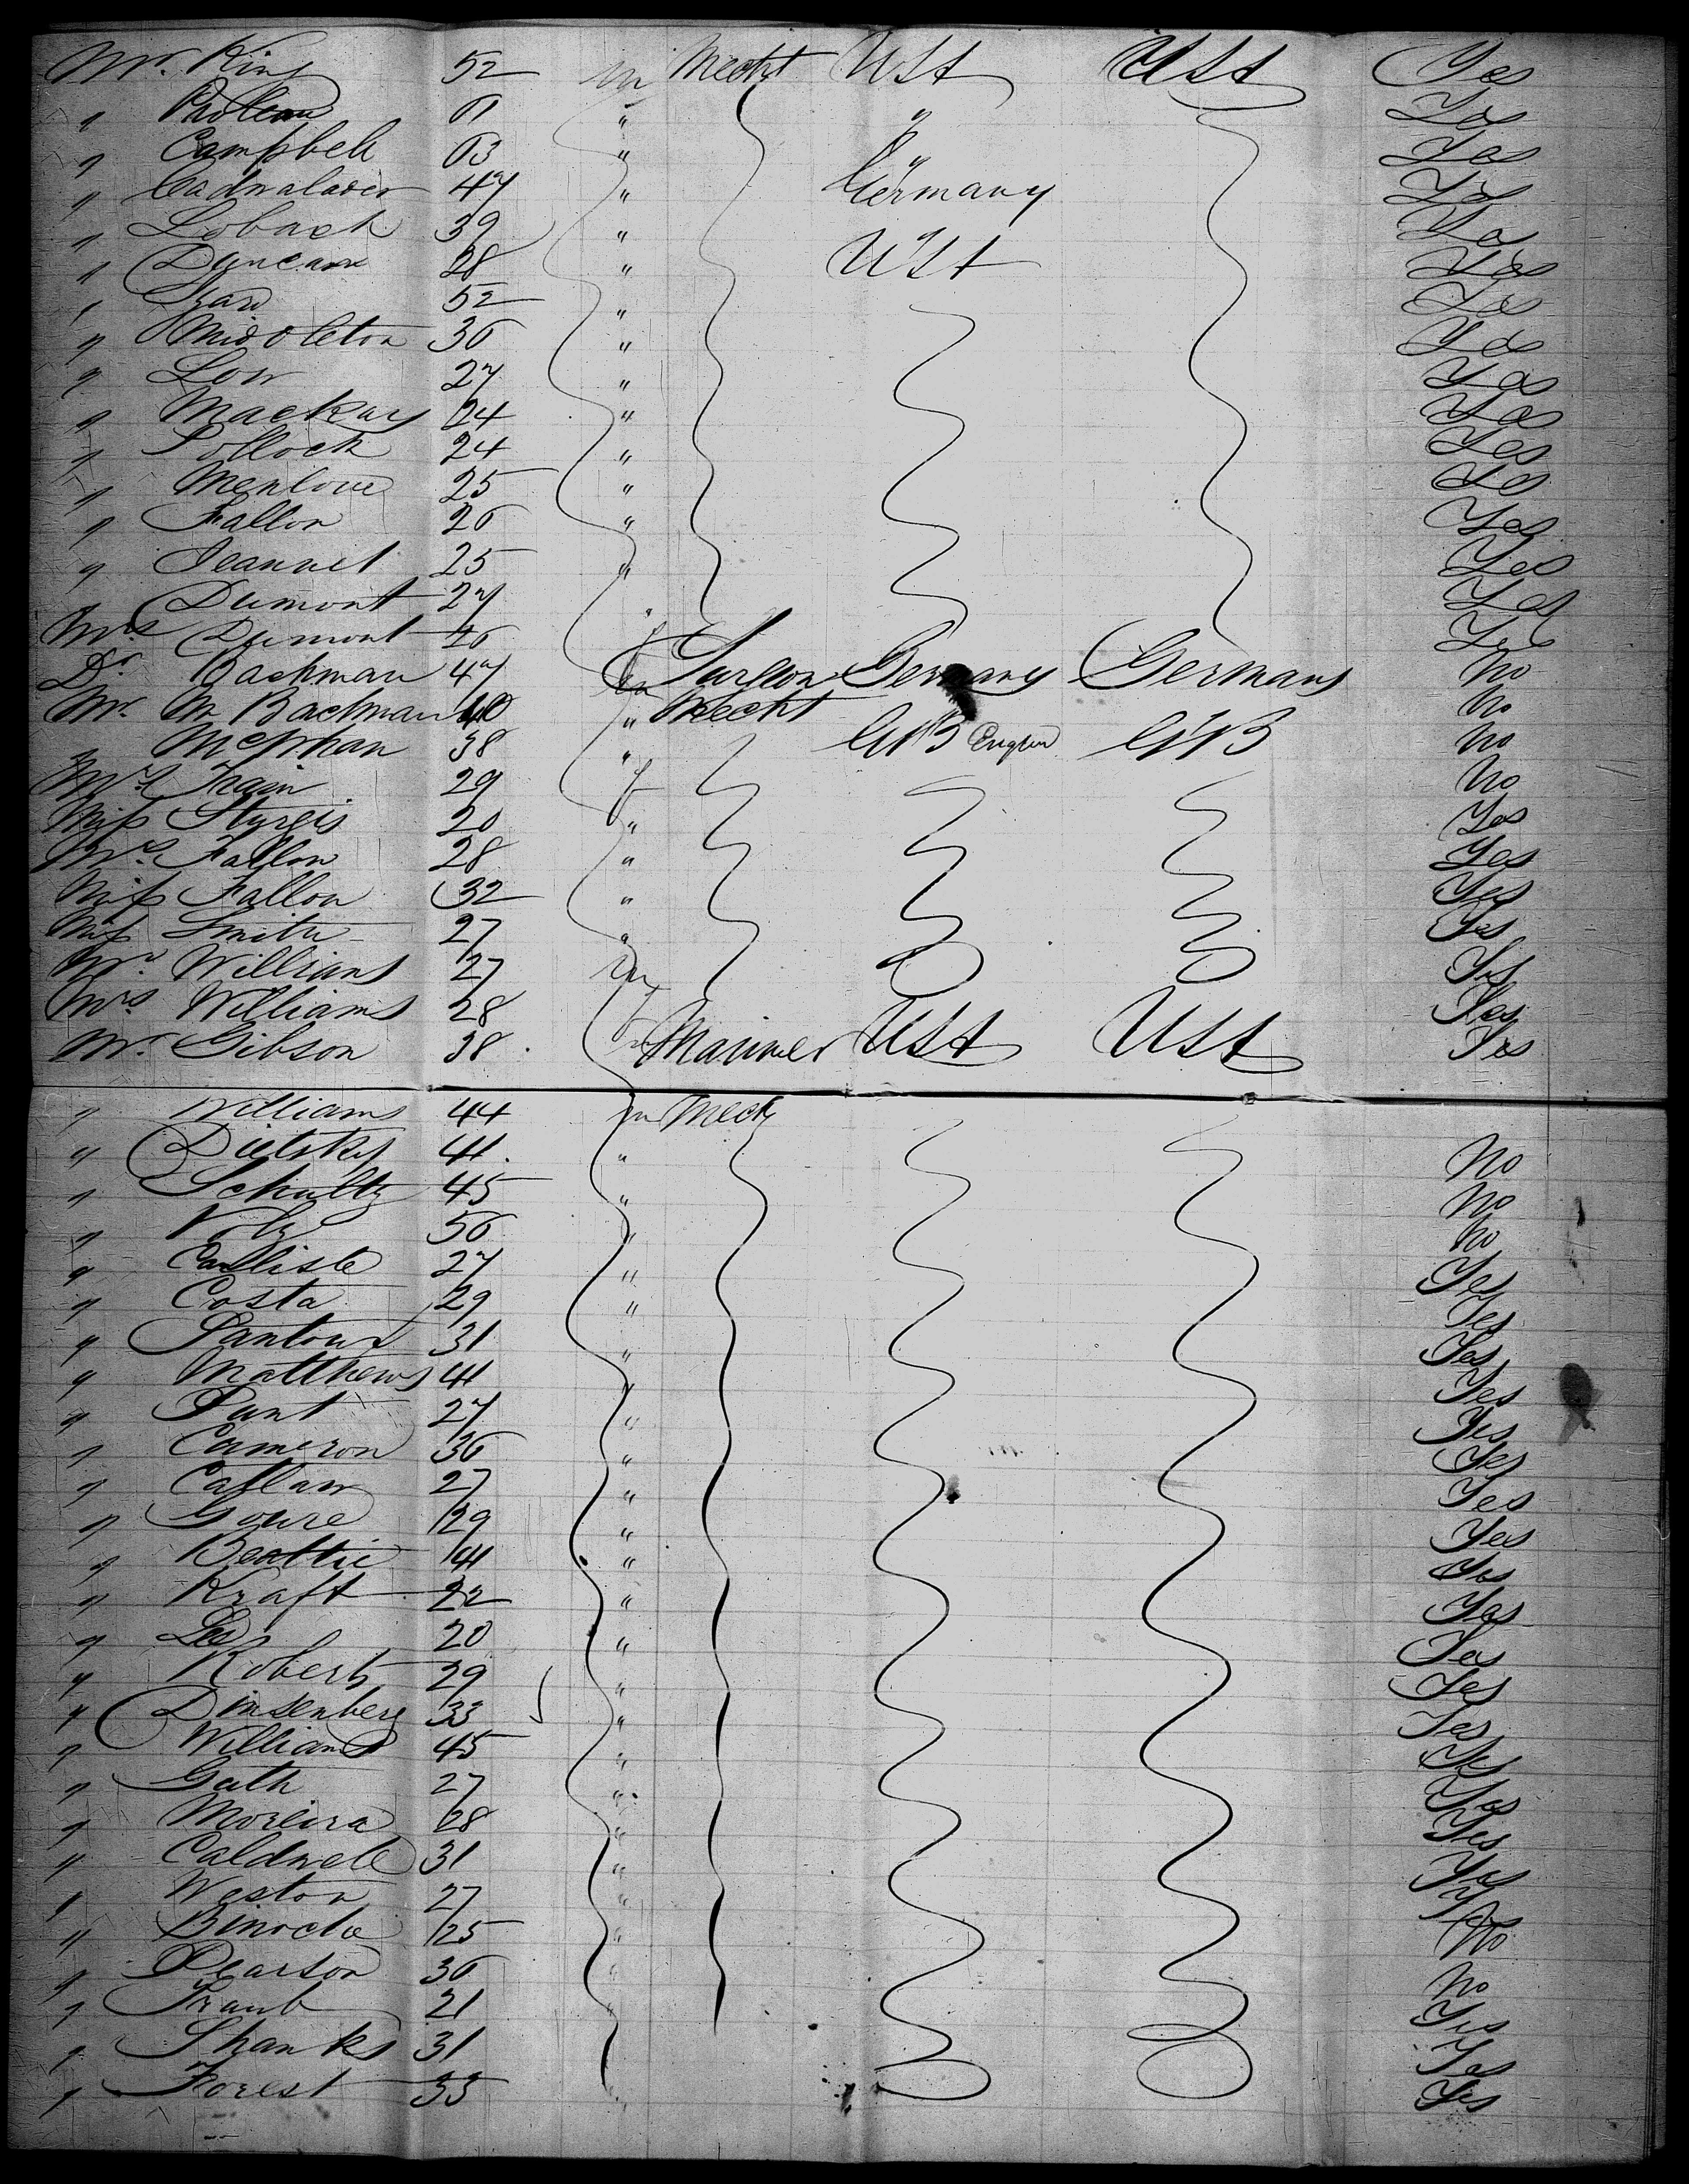 Mr. King 52 m Mecht USA USA Yes
" 61 " " Yes
" Campbell 63 " " Yes
" Cadwalader 47 " Germany Yes
" Lobach 39 " Yes
" Duncan 28 " USA Yes
" 52 " Yes
" Middleton 36 " Yes
" Low 27 " Yes
" Mackay 24 " Yes
" Pollock 24 " Yes
" Menlove 25 " Yes
" Fallon 26 " Yes
" Jeannet 25 " Yes
" Dumont 27 " Yes
Mrs Dumont 26 f Yes
Dr. Backman 47 m Surgeon Germany Germany No
Mr. M Backman 40 " Mecht No
" McPhan 38 " GtB GtB No
Mrs Train 29 f No
Miss Sturgis 20 " Yes
Mrs. Fallon 28 " Yes
Miss Fallon 32 " Yes
Miss Smith 27 " Yes
Mr. Williams 27 m Yes
Mrs. Williams 28 f Yes
Mr. Gibson 38 m Mariner USA USA Yes
" Williams 44 m Mech
" 41 " No
" Schultz 45 " No
" Volz 56 " No
" Carlisle 27 " Yes
" Costa 29 " Yes
" 31 " Yes
" Matthews 41 " Yes
" 27 " Yes
" Cameron 36 " Yes
" 27 " Yes
" 29 " Yes
" Beattie 41 " Yes
" Kraft 22 " Yes
" Lee 20 " Yes
" Roberts 29 " Yes
" Dinsenberg 33 " Yes
" Williams 45 " Yes
" Guth 27 " Yes
" Moreira 28 " Yes
" Caldwell 31 " Yes
" Weston 27 " Yes
" Binoche 25 " No
" Pearson 36 " No
" Traub 21 " Yes
" Shanks 31 Yes
" Forest 33 " Yes